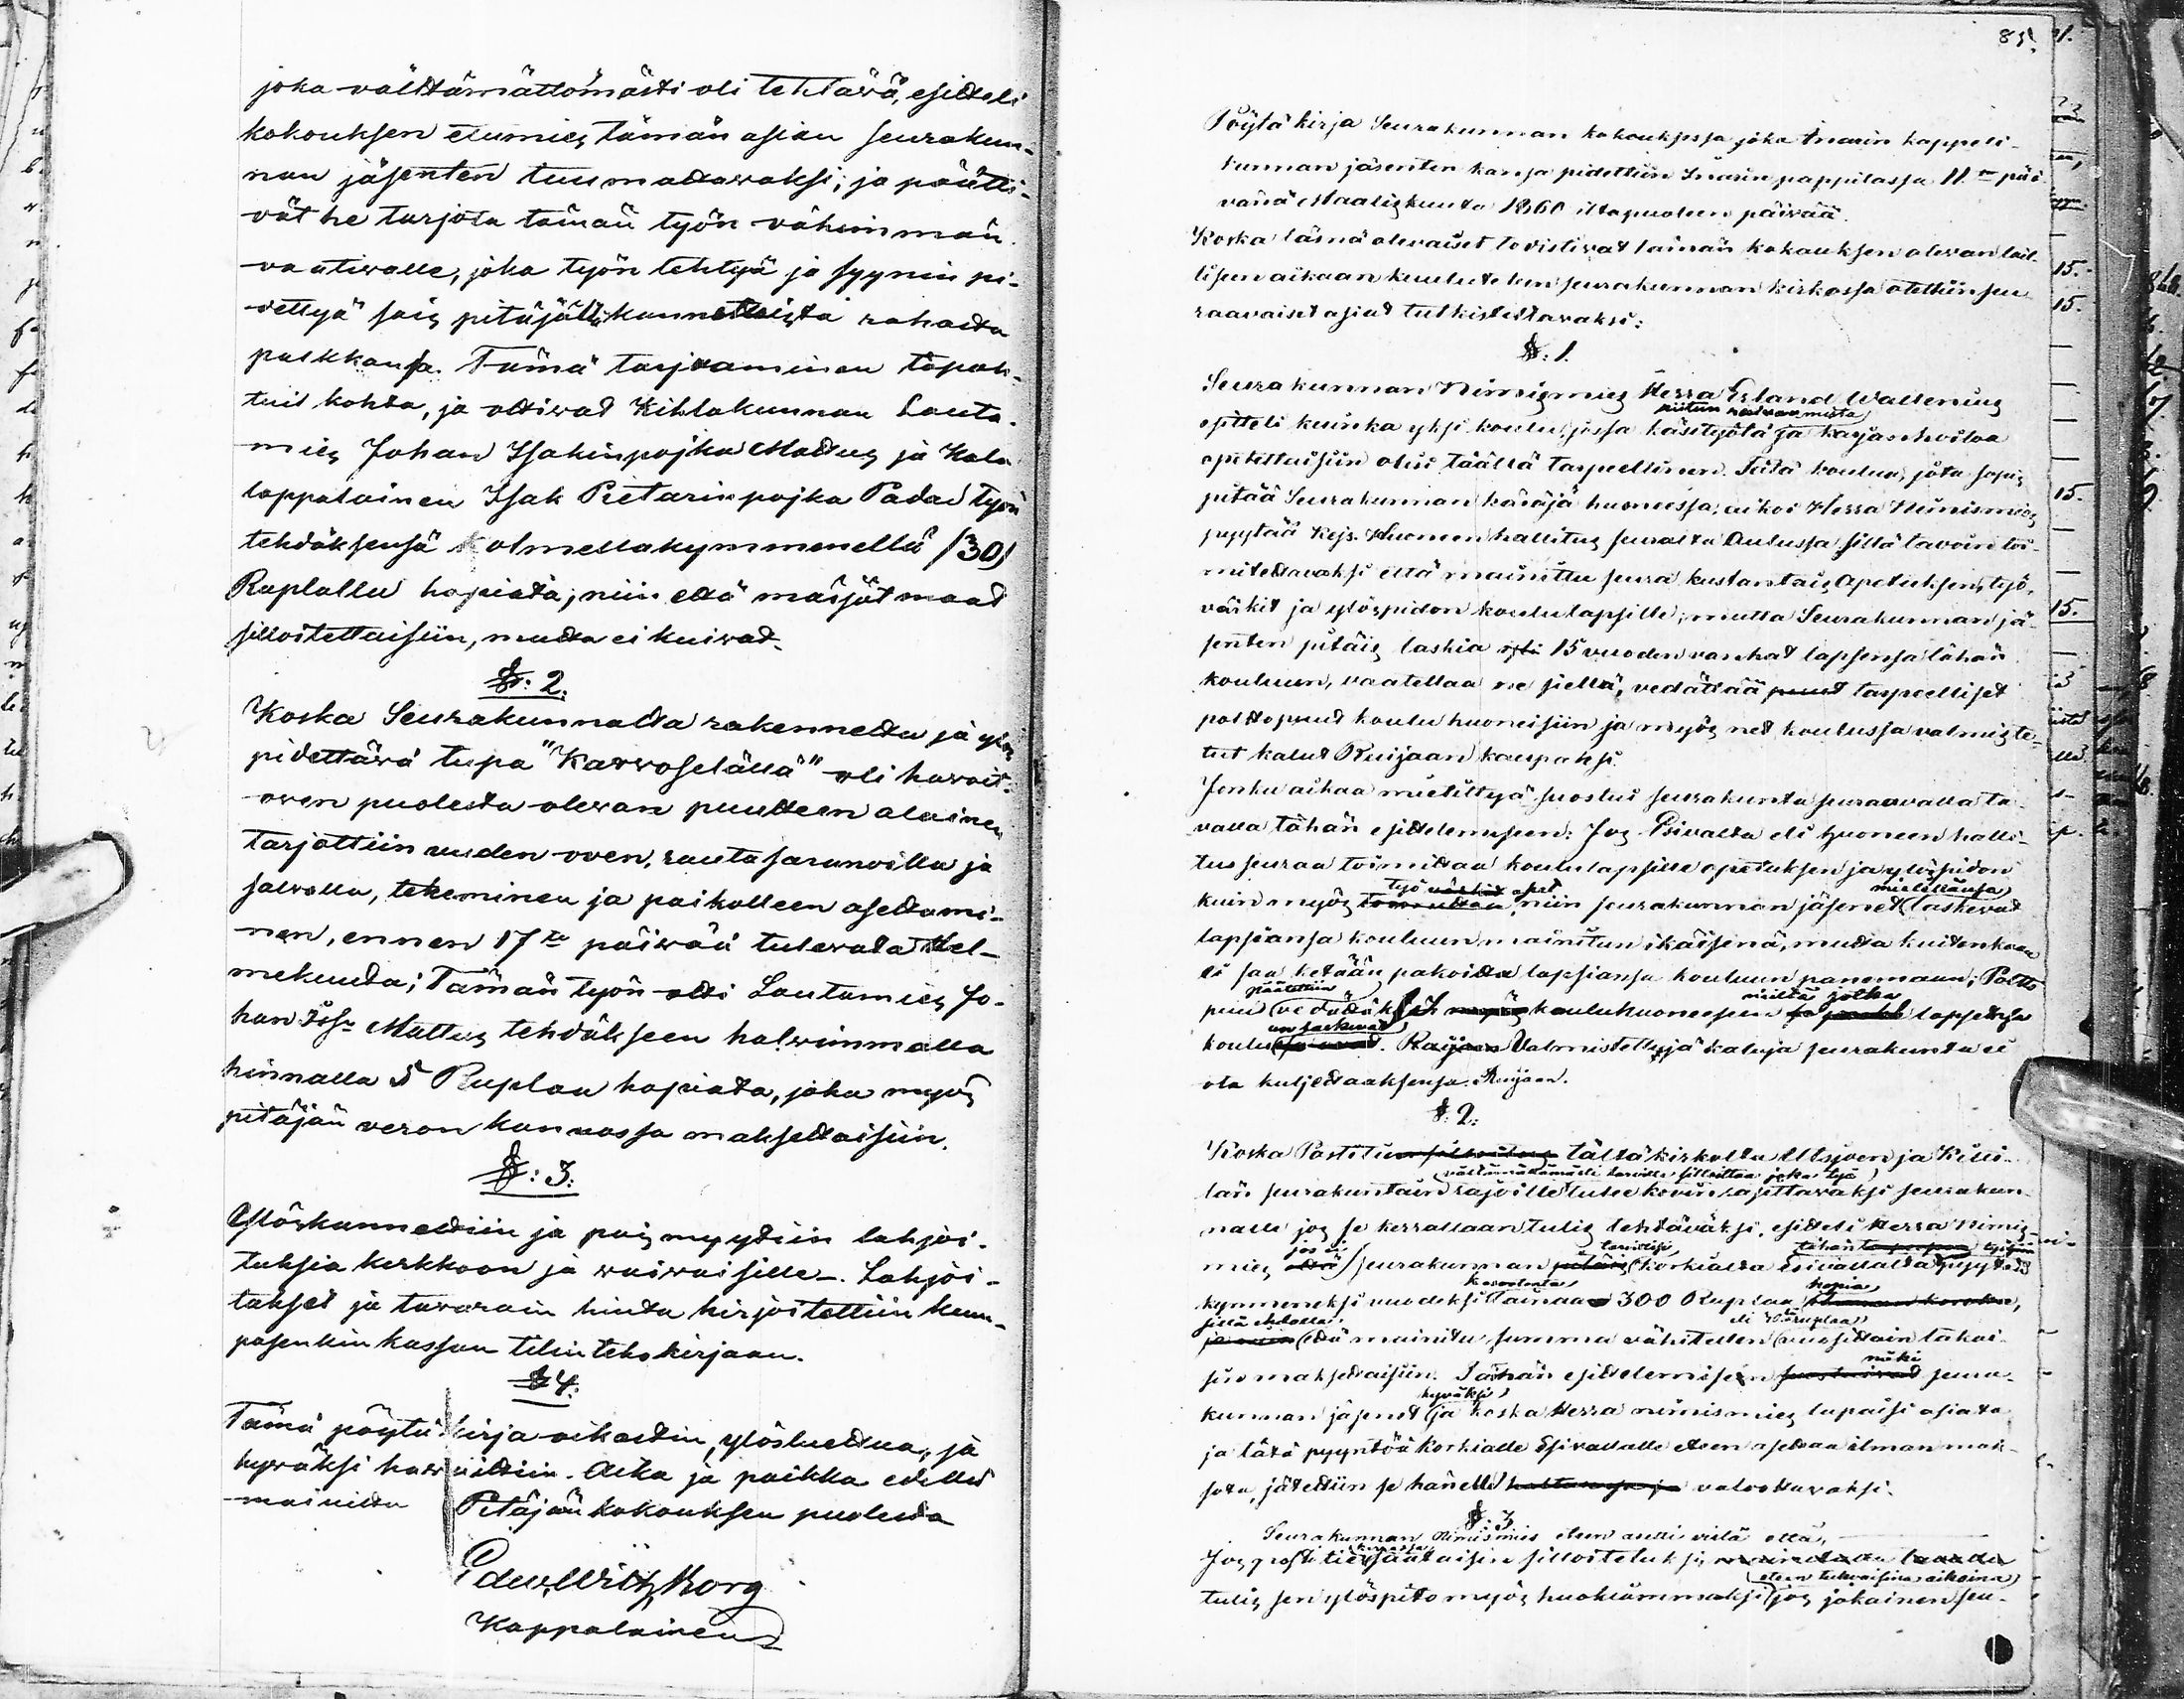 joka välttämättömästi oli tehtävä, esitteli
kokouksen esimies tämän asian seurakun-
nan jäsenten tuumattavaksi; ja päätti-
vät he tarjota tämän työn vähimmän
vaativalle, joka työn tehtyä ja syynin pi-
dettyä sais pitäjält kannettavista rahasta
palkkansa. Tämä tarjoaminen tapah-
tui kohta, ja ottivat Kihlakunnan Lauta-
mies Johan Isakinpojka Mattus ja Kala
lappalainen Isak Pietarinpojka Padar työn
tehdäksensä kolmellakymmenellä /30/
Ruplalla hopiata; niin että märjät maat
silloitettaisiin, mutta ei kuivat.
§: 2.
Koska Seurakunnalta rakennettu ja ylös
pidettävä tupa "Karvaselällä" oli havait-
oven puolesta olevan puutteen alainen
tarjottiin uuden oven, rautasaranoilla ja
salvalla, tekeminen ja paikalleen asettami-
nen, ennen 17ta päivää tulevata Hel-
mekuuta; Tämän työn otti Lautamies Jo-
han Isfn Mattus tehdäkseen halvimmalla
hinnalla 5 Ruplaa hopiata, joka myös
pitäjän veron kannossa maksettaisiin.
§: 3.
Ylöskannettiin ja pois myytiin lahjoi-
tuksia kirkkoon ja vaivaisille. Lahjoi-
tukset ja tavarain hinta kirjoitettiin kum-
pasenkin kassan tilinteko kirjaan.
§ 4.
Tämä pöytäkirja oikastiin, ylösluettua, ja
hyväksi havaittiin. Aika ja paikka edellä
mainittu Pitäjän kokouksen puolesta
Edw. Wilh. Borg
Kappalainen
85.
Pöytäkirja Seurakunnan kokouksessa joka Inarin kappeli-
kunnan jäsenten kansa pidettiin Inarin pappilassa 11.ta päi
vänä Maaliskuuta 1860 iltapuoleen päivää.
Koska läsnä olevaiset todistivat tämän kokouksen olevan lail-
lisen aikaan kuulutetun seurakunnan kirkossa otettiin seu
raavaiset asiat tutkisteltavaksi:
§: 1.
Seurakunnan Nimismies Herra Erland Wallenius
esitteli kuinka yksi koulu, jossa käsityötä ja karjanhoitoa
opetettaisiin olisi täällä tarpeellinen. Tätä koulua, jota sopis
pitää Seurakunnan käräjä huoneessa, aikoi Herra Nimismies
pyytää Kejs. Huoneenhallitus seuralta Oulussa sillä tavoin toi-
mitettavaksi että mainittu seura kustantais Opetuksen, työ-
värkit ja ylöspidon koululapsille; mutta Seurakunnan jä-
senten pitäis laskia 15 vuoden vanhat lapsensa tähän
kouluun, vaatettaa ne siellä, vedättää puut tarpeelliset
polttopuut koulu huoneisiin ja myös net koulussa valmiste-
tut kalut Ruijaan kaupaksi.
Jonku aikaa mietittyä suostui seurakunta seuraavalla ta-
valla tähän esittelemiseen: Jos Privalta eli huoneen halli-
tus seuraa toimittaa koululapsille opetuksen ja ylöspidon
työ värkit mielellänsä
kuin myös niin seurakunnan jäsenet laskevat
lapsiansa kouluun mainitun ikäisenä, mutta kuitenkaan
ei saa ketään pakoitta lapsiansa kouluun panemaan; Poltto
päätettiin niiltä jotka
puu vedättäk koulu huoneeseen lapsensa
koulu. Valmistettyjä kaluja seurakunta ei
ota kuljettaaksensa Ruijaan.
§: 2.
Koska Postitie tältä kirkolta Utsjoen ja Kitti-
välttämättömästi tarvitte silloittaa joka työ
län seurakuntain rajoille tulee kovin rasittavaksi seurakun
nalle jos se kerrallaan tulis tehtäväksi, esitteli Herra nimis-
jos ei
mies seurakunnan korkialta Esivallalta pyytää
kymmeneksi vuodeksi lainaa 300 Ruplaa
sillä ehdolla
että mainittu summa vähitellen vuosittain takai
sin maksettaisiin. Tähän esittelemiseen seura-
hyväksi
kunnan jäsenet ja koska Herra nimismies lupaisi asiata
ja tätä pyyntöä korkialle Esivallalle eteen asettaa ilman mak-
sota, jätettiin se hänelle valvottavaksi.
§: 3
Seurakunnan Nimismies eteen asetti vielä että,
Jos posti tie saataisiin silloitetuksi,
eteen tulevaisina aikoina
tulis sen ylöspito myös huokiammaksi jos jokainen seu-